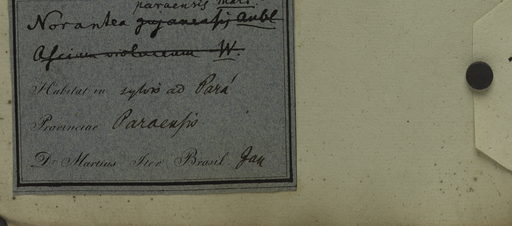 paraensis Mart.
Norantea gujanensis Aubl
Ascium violaceum W.
Habitat in sylvis ad Pará
Provinciae Paraensis
Dr Martius Iter Brasil. Jan